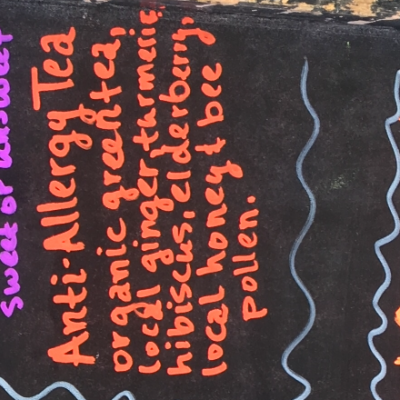 sweet or unsweet
Anti-Allergy Tea
organic green tea,
local ginger turmeric,
hibiscus, elderberry,
local honey & bee
pollen.